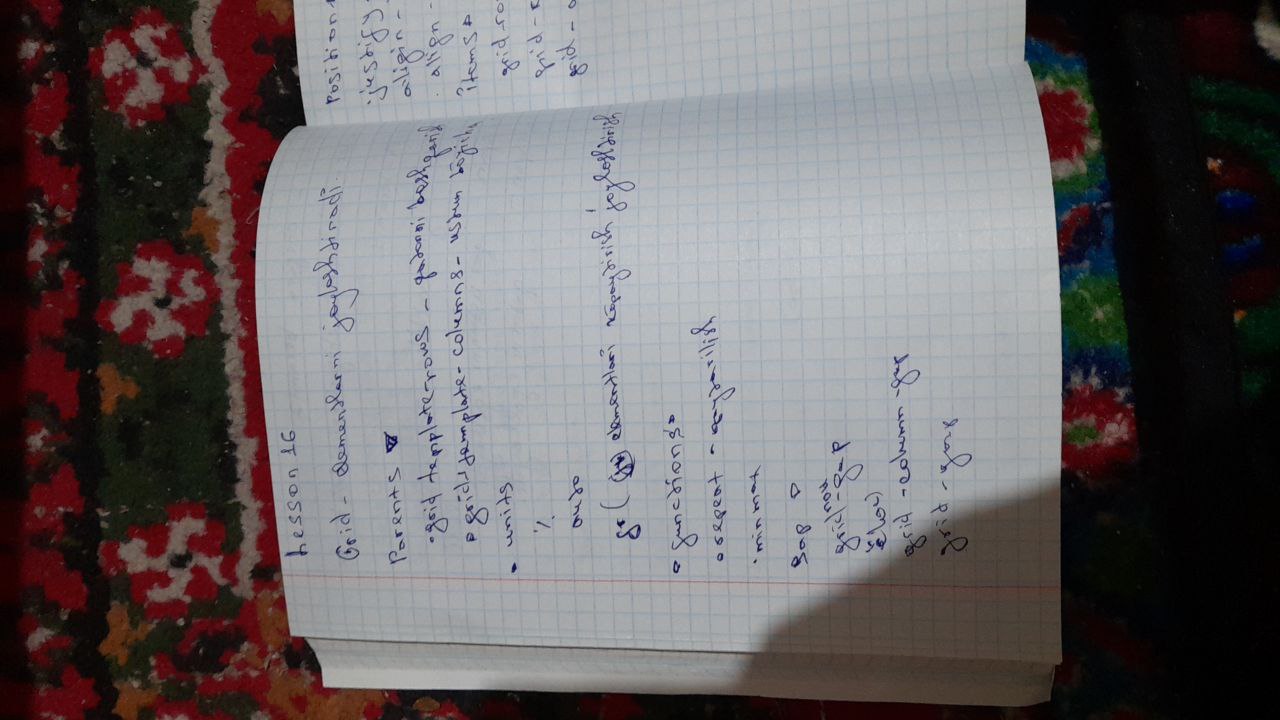 Lesson 16
Grid - elementlarni joylashtiradi.
Parents
• grid template-rows - qatorni boshqarish
• grid-template-columns - ustun bo'yicha
• units
%
auto
fr ( elementlari kopaytirish joylashtirish
• functions
• repeat - qaytarilish
• minmax
gap
grid-row-gap
grid-column-gap
grid-gap
position
justify-
align-
align-
items
grid-ro
grid-
grid-